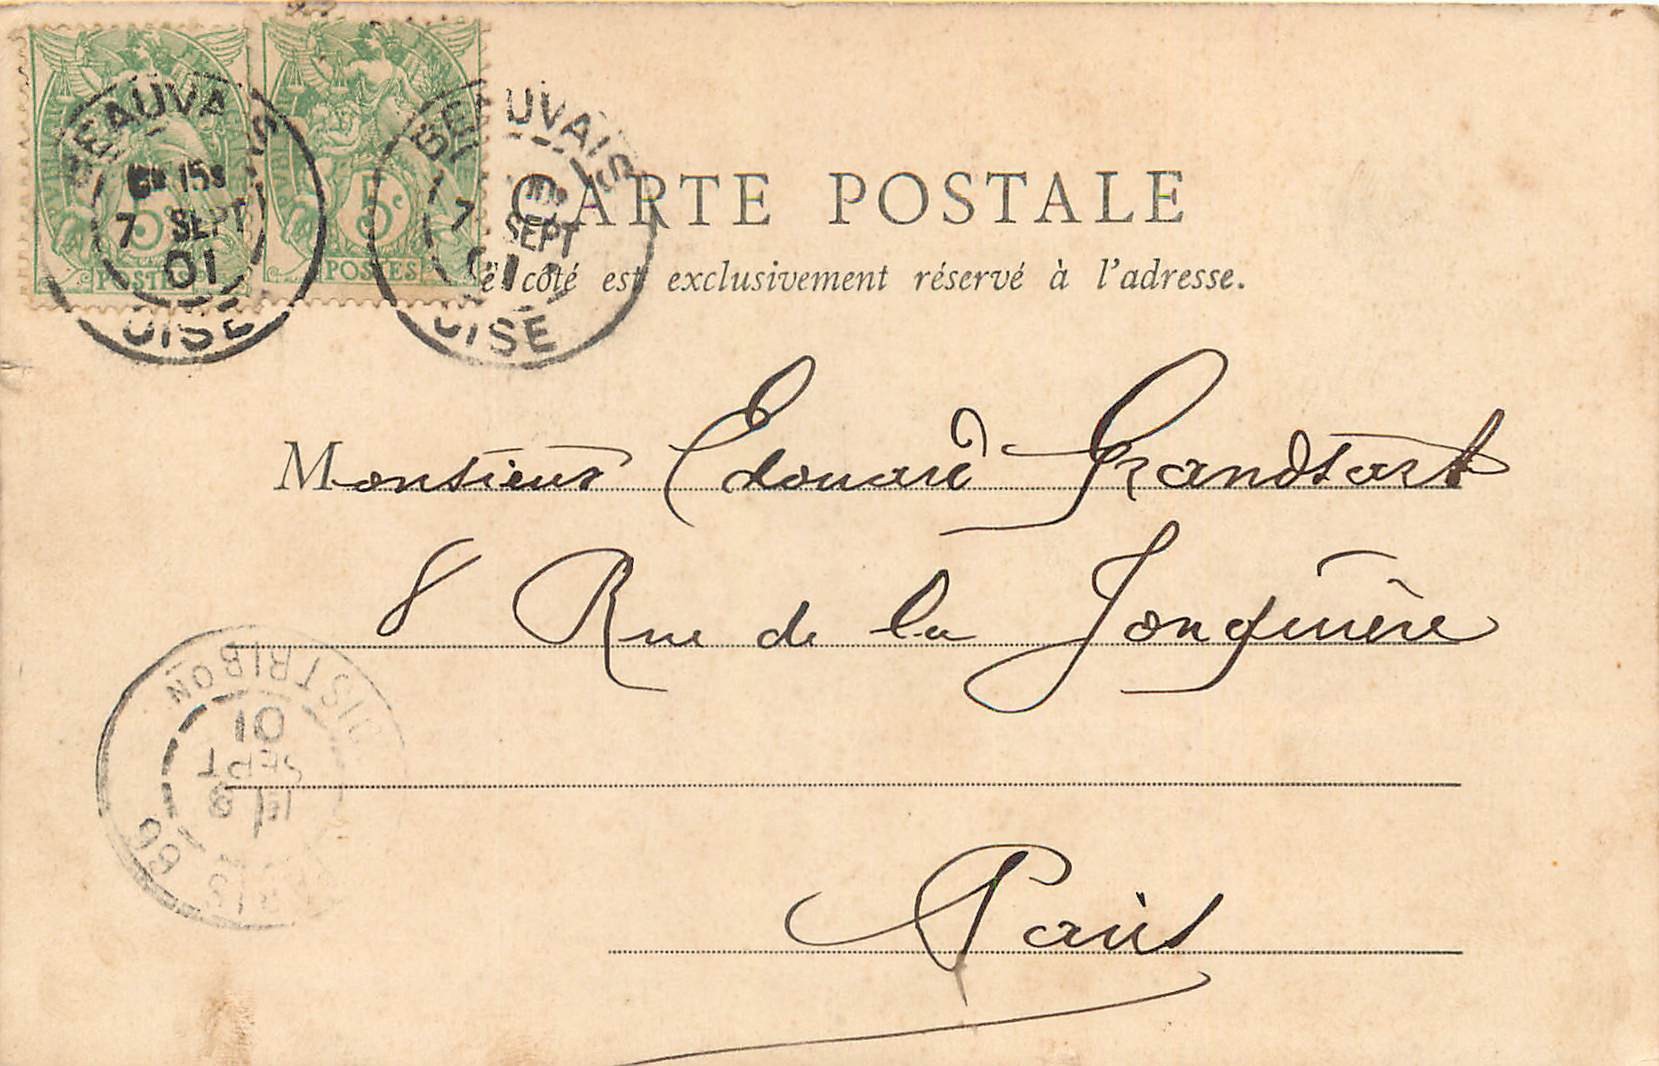 BEAUVAIS
6E 15S
7 SEPT
01
OISE
5c
POSTES
BEAUVAIS
7 SEPT
01
OISE
5c
POSTES
CARTE POSTALE
Ce côté est exclusivement réservé à l'adresse.
Monsieur Edouard Grandsart
8 Rue de la Jonquière
Paris
PARIS 60
8
SEPT
01
DISTRIBON